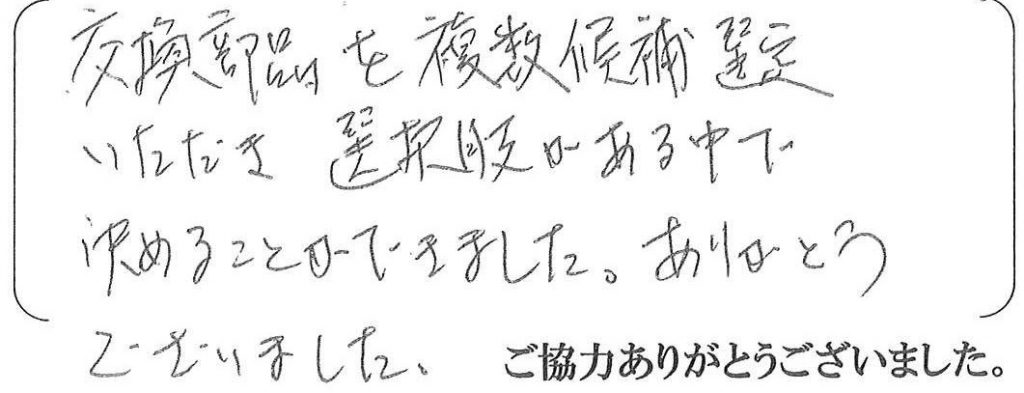 交換部品を複数候補選定
いただき選択肢がある中で
決めることができました。ありがとう
ございました。
ご協力ありがとうございました。